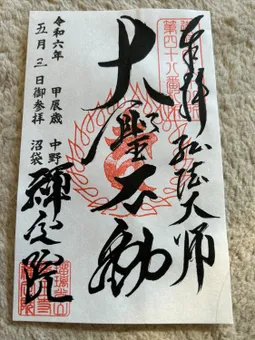 奉拝 弘法大師
第四十八番
大聖不動
令和六年 甲辰歳 中野
五月三日御参拝 沼袋
禅定院